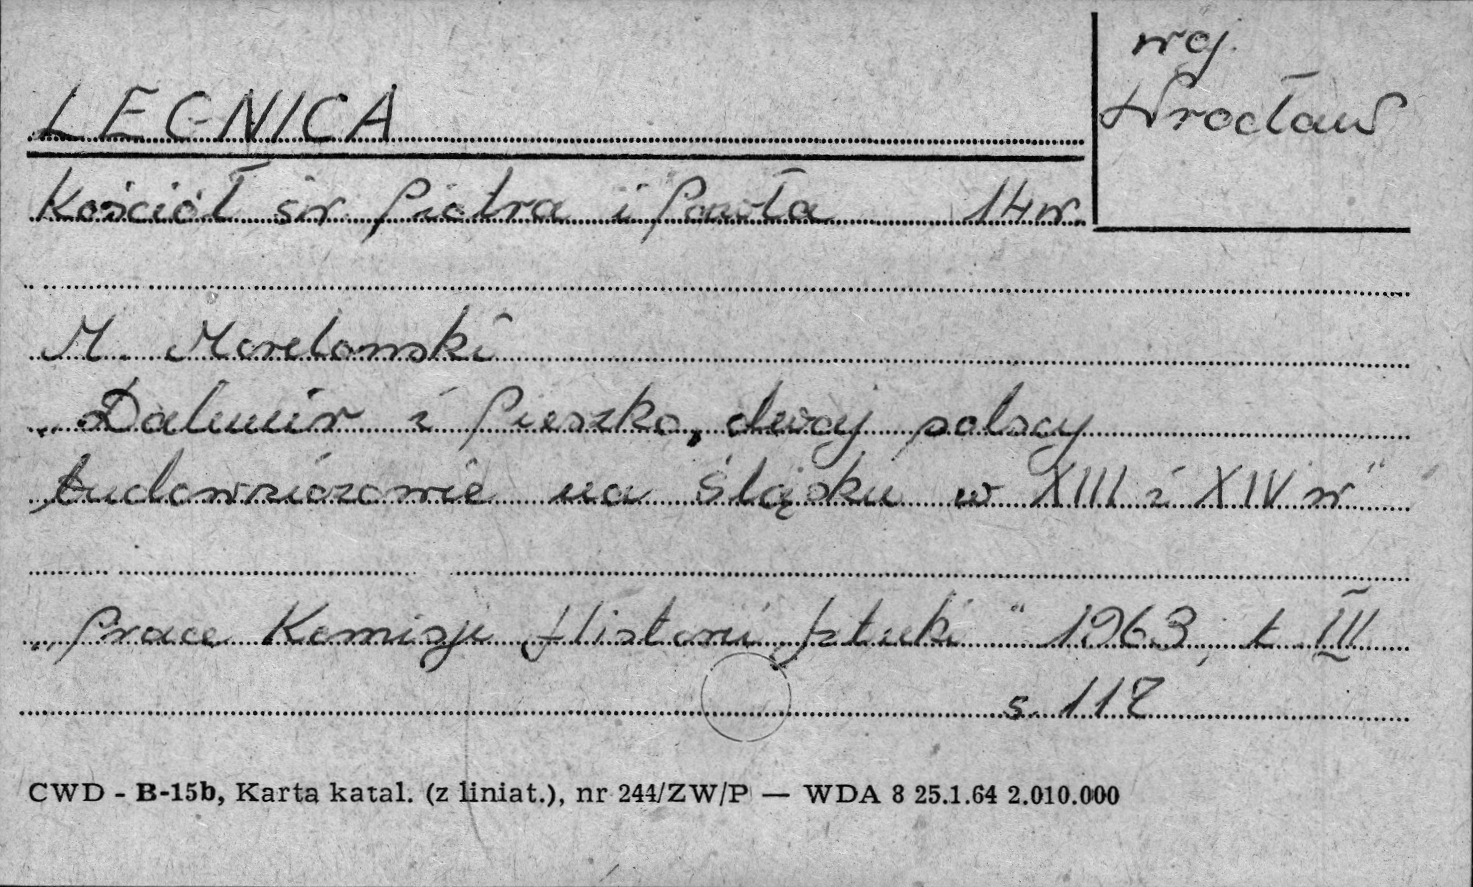 woj.
Wrocław
LEGNICA
Kościół św. Piotra i Pawła 14 w.
M. Morelowski
„Dalemir i Pieszko, dwaj polscy
budowniczowie na Śląsku w XIII i XIV w"
„Prace Komisji Historii Sztuki" 1963, t III
s. 117
CWD - B-15b, Karta katal. (z liniat.), nr 244/ZW/P — WDA 8 25.1.64 2.010.000